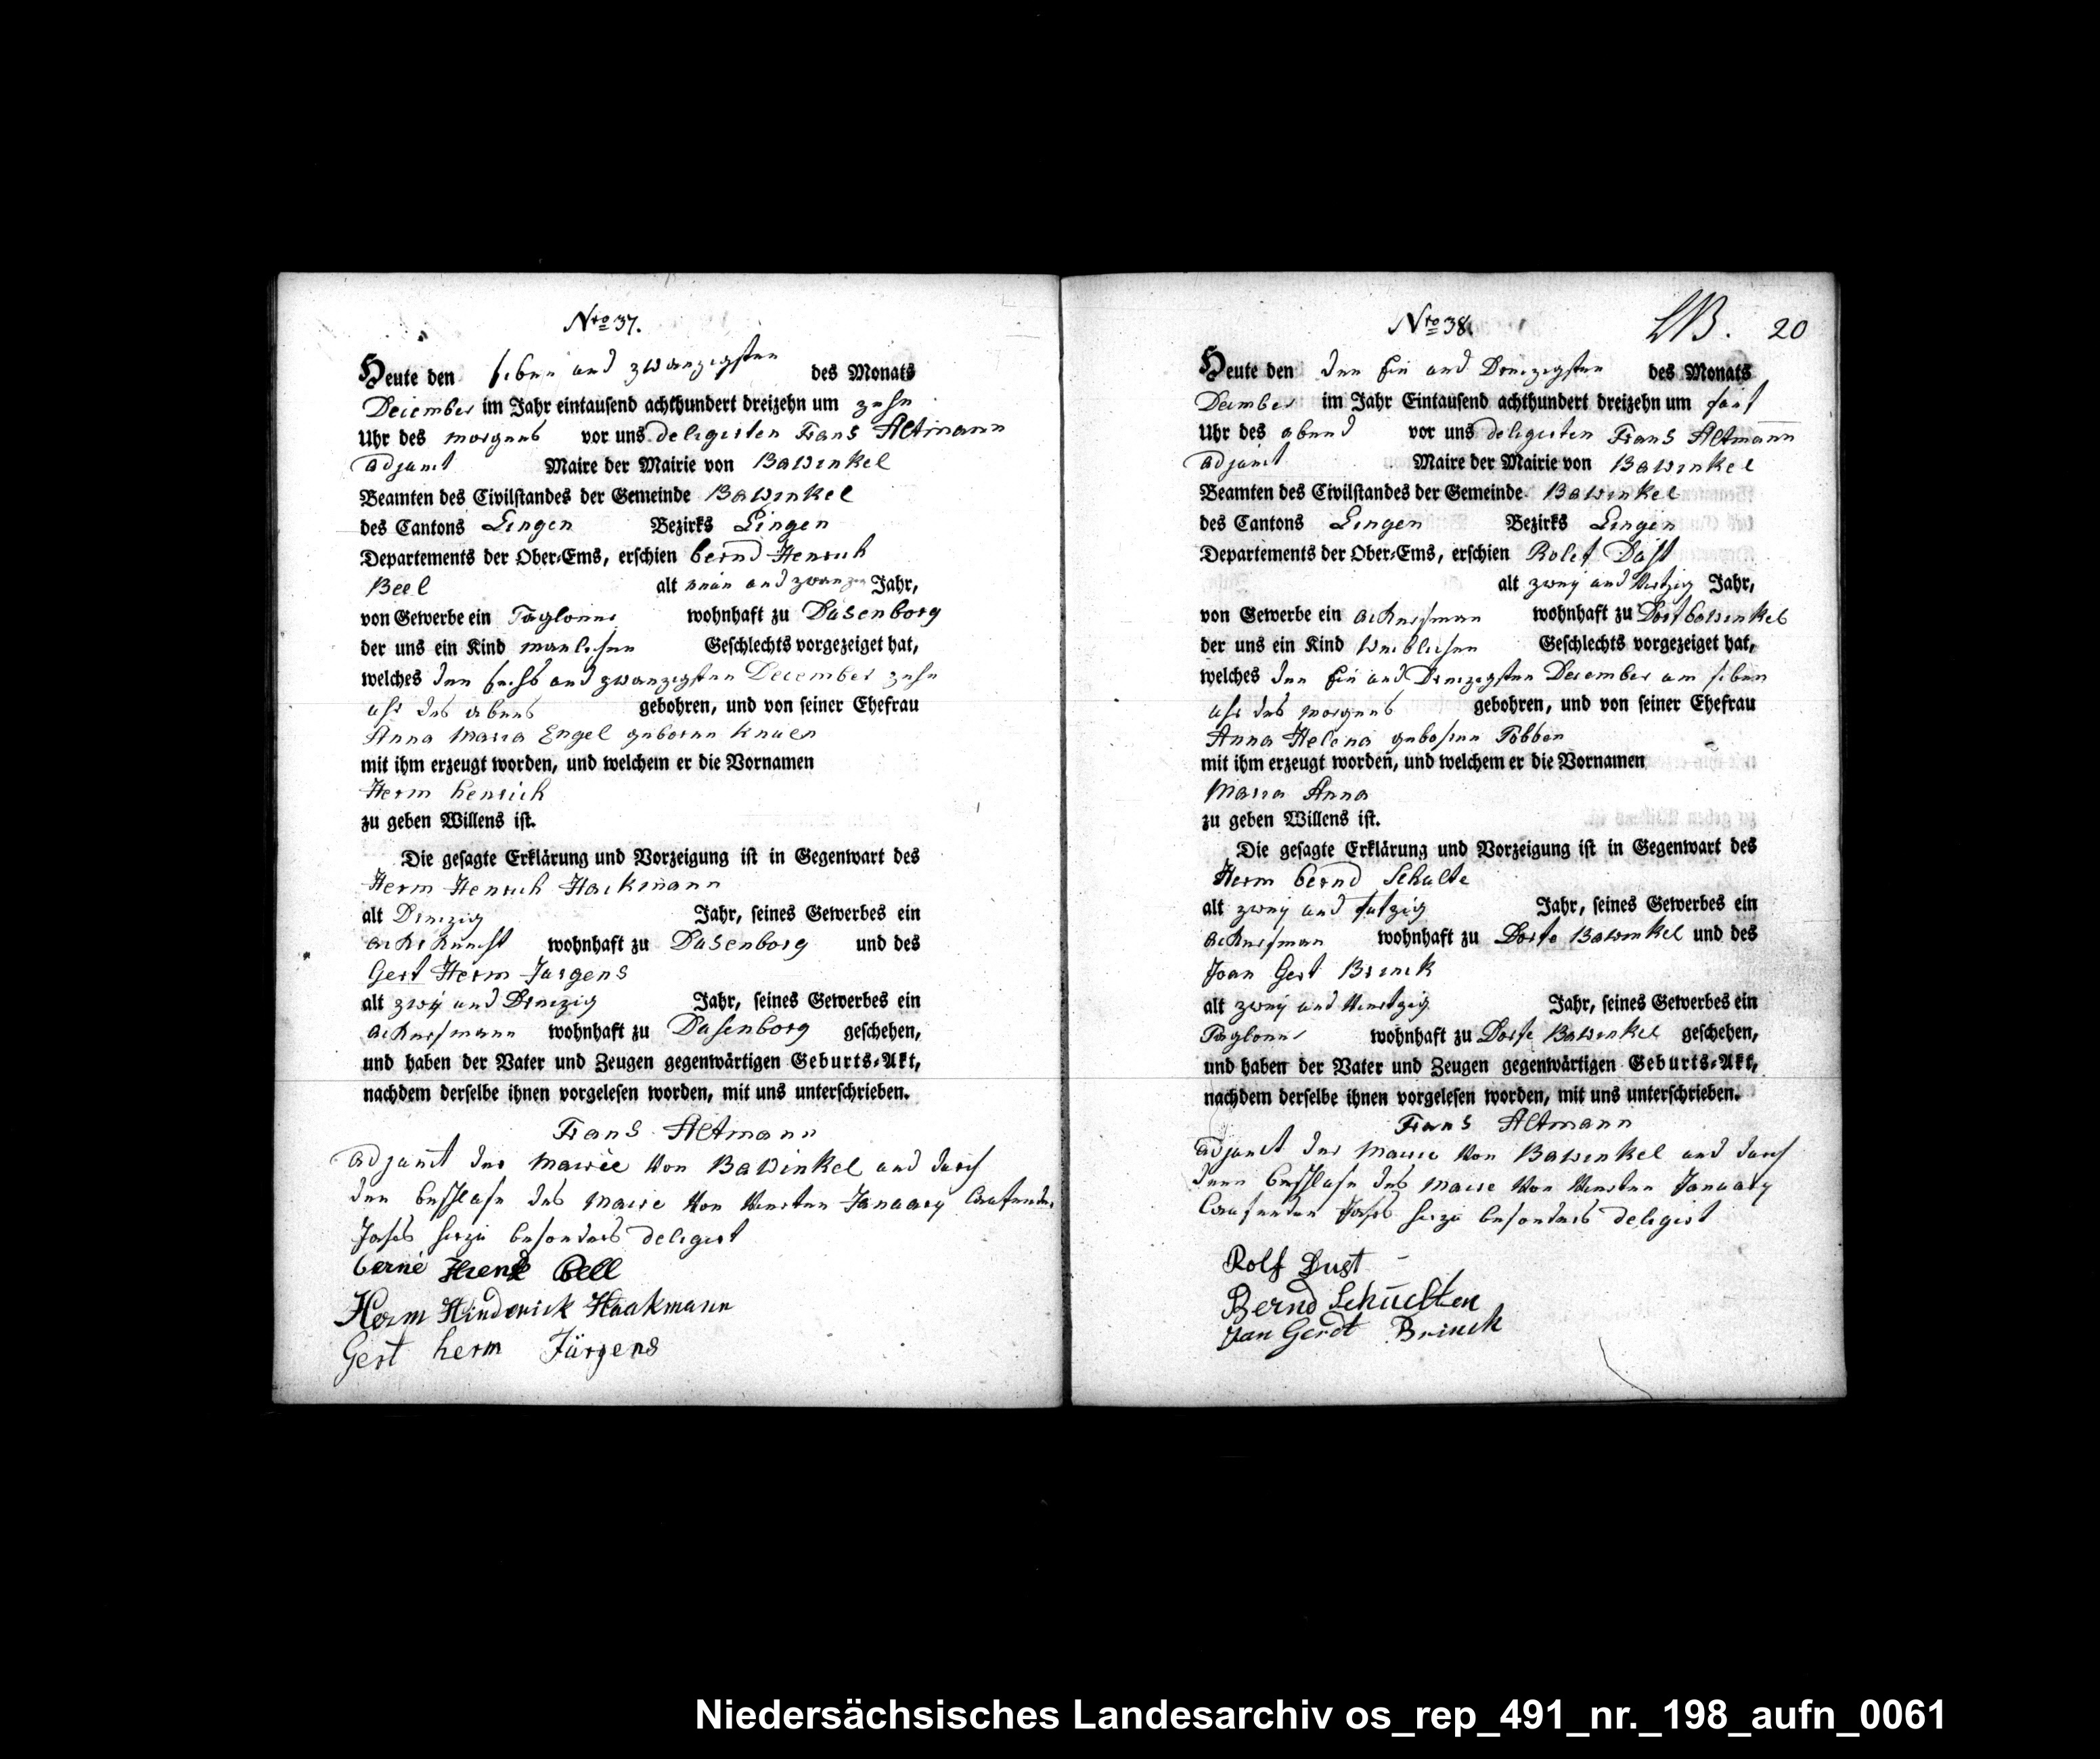 Nto 37.
Heute den sieben und zwanzigsten des Monats
December im Jahr eintausend achthundert dreizehn um zehn
Uhr des morgens vor uns delegirten Frans Altmann
adjunct Maire der Mairie von Bawinkel
Beamten des Civilstandes der Gemeinde Bawinkel
des Cantons Lingen Bezirks Lingen
Departements der Ober-Ems, erschien bernd Henrich
Beel alt neun und zwanzig Jahr,
von Gewerbe ein Taglöner wohnhaft zu Dusenborg
der uns ein Kind manlichen Geschlechts vorgezeiget hat,
welches den sechs und zwanzigsten December zehn
uhr des abens gebohren, und von seiner Ehefrau
Anna Maria Engel geboren
mit ihm erzeugt worden, und welchem er die Vornamen
Herm henrich
zu geben Willens ist.
Die gesagte Erklärung und Vorzeigung ist in Gegenwart des
Herm Henrich Hackmann
alt Dreizig Jahr, seines Gewerbes ein
wohnhaft zu Dusenborg und des
Gert Herm Jurgens
alt zwey und Dreizig Jahr, seines Gewerbes ein
ackersmann wohnhaft zu Dusenborg geschehen,
und haben der Vater und Zeugen gegenwärtigen Geburts-Akt,
nachdem derselbe ihnen vorgelesen worden, mit uns unterschrieben.
Frans Altmann
adjunct der Mairie von Bawinkel und durch
den beschluss des Maire von Januar laufenden
Jahrs hierzu besonders delegirt
Herm Hinderick Haakmann
Gert herm Jürgens
Nto 38. 20
Heute den den Ein und Dreizigsten des Monats
im Jahr Eintausend achthundert dreizehn um
Uhr des abend vor uns delegirten Frans Altmann
adjunct Maire der Mairie von Bawinkel
Beamten des Civilstandes der Gemeinde Bawinkel
des Cantons Lingen Bezirks Lingen
Departements der Ober-Ems, erschien Rolef
alt zwey und Jahr,
von Gewerbe ein ackersmann wohnhaft zu Dorf bawinkel
der uns ein Kind Weiblichen Geschlechts vorgezeiget hat,
welches den Ein und Dreizigsten December um sieben
uhr des morgens gebohren, und von seiner Ehefrau
Anna Helena gebohren Tobben
mit ihm erzeugt worden, und welchem er die Vornamen
Maria Anna
zu geben Willens ist.
Die gesagte Erklärung und Vorzeigung ist in Gegenwart des
Herm bernd Schulte
alt zwey und Jahr, seines Gewerbes ein
ackersman wohnhaft zu Dorfe Bawinkel und des
Joan Gert Brinck
alt zwey und Jahr, seines Gewerbes ein
Taglöner wohnhaft zu Dorfe Bawinkel geschehen,
und haben der Vater und Zeugen gegenwärtigen Geburts-Akt,
nachdem derselbe ihnen vorgelesen worden, mit uns unterschrieben.
Frans Altmann
adjunct der Mairie von Bawinkel und durch
denn beschluss des Maire von Januar
laufenden Jahrs hierzu besonders delegirt
Rolf Dust
Bernd Schulten
Jan Gerdt Brinck
Niedersächsisches Landesarchiv os_rep_491_nr._198_aufn_0061